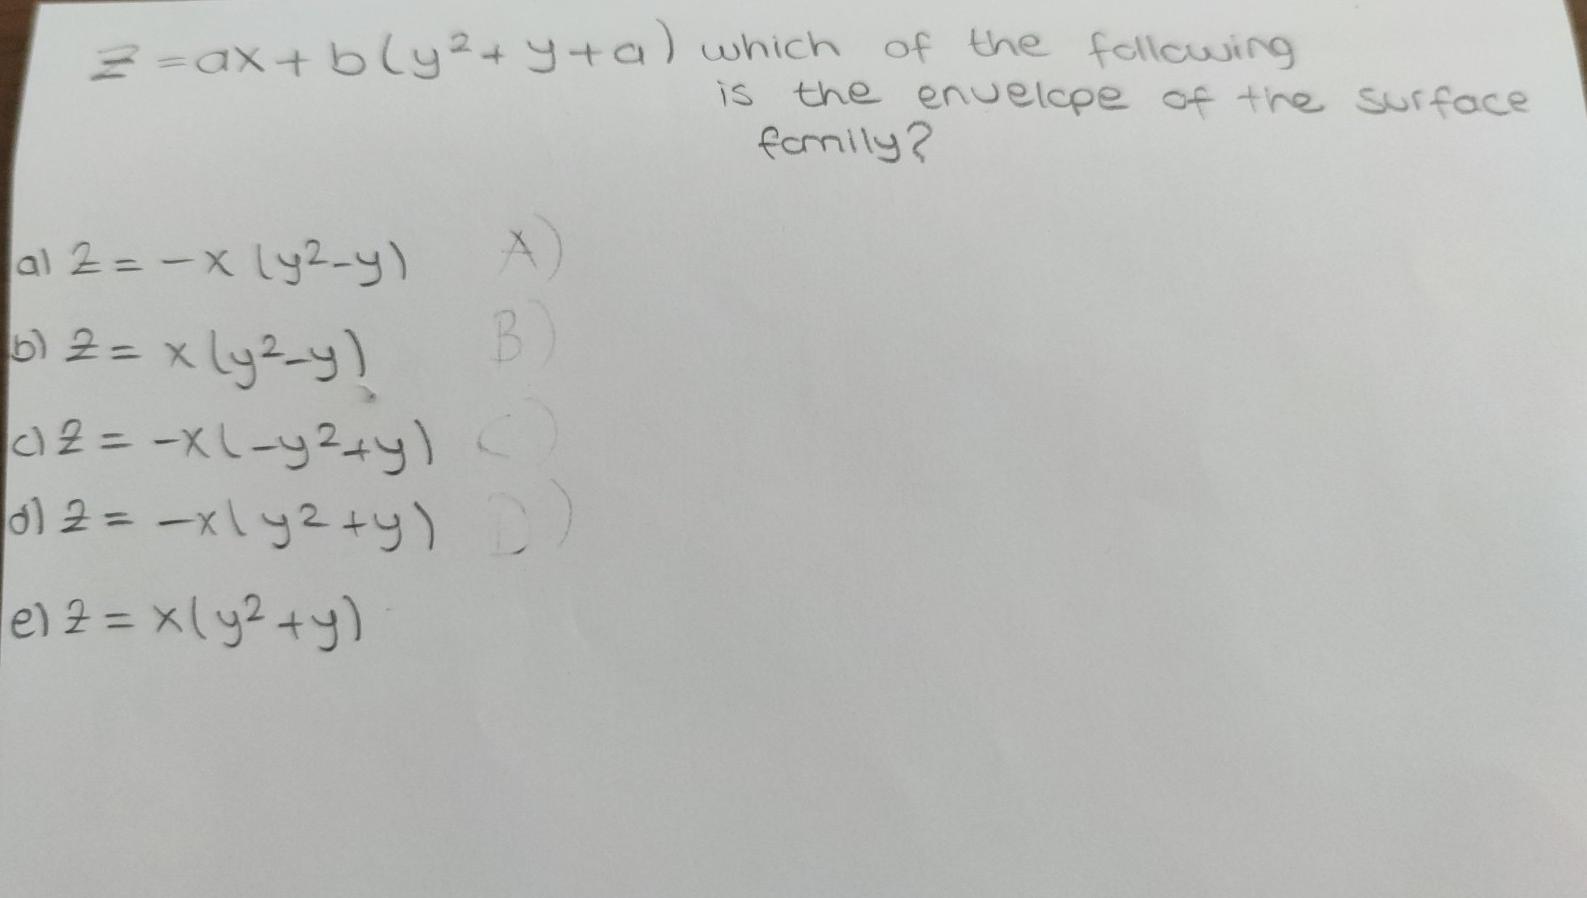 z = ax + b(y² + y + a) which of the following
is the envelope of the surface
family?
a) z = -x (y² - y) A)
b) z = x (y² - y) B)
c) z = -x(-y² + y) C)
d) z = -x(y² + y) D)
e) z = x(y² + y)